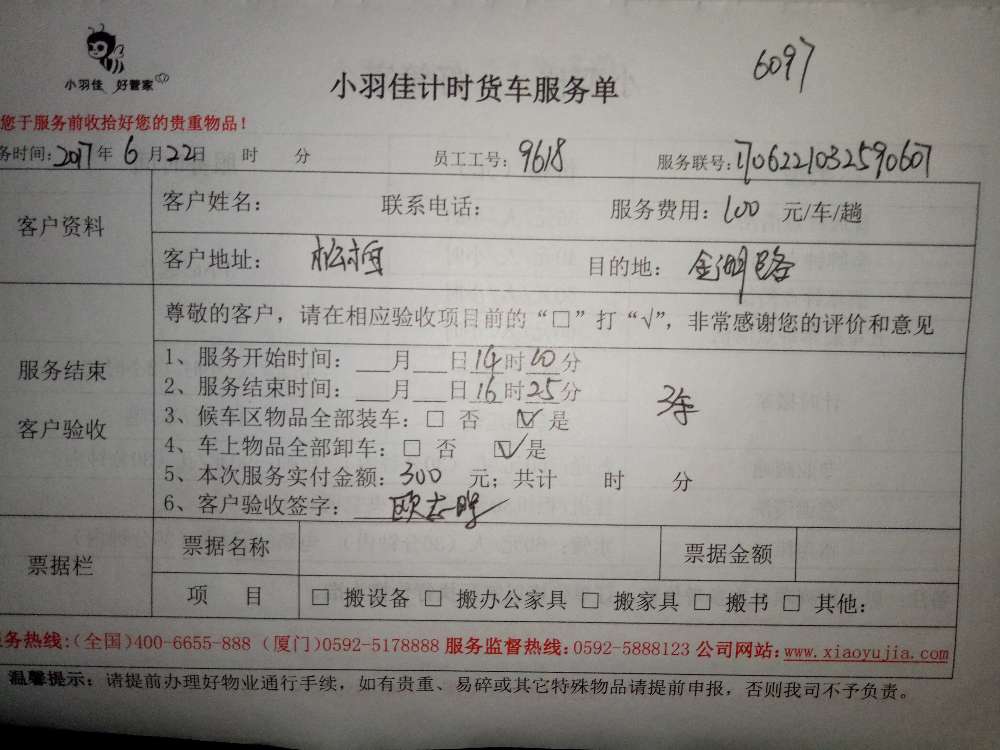 小羽佳 好管家
小羽佳计时货车服务单
6097
您于服务前收拾好您的贵重物品！
务时间：2017年6月22日 时 分 员工工号：9618 服务联号：1706221032590607
客户资料
客户姓名： 联系电话： 服务费用：100 元/车/趟
客户地址：松柏 目的地：金湖路
尊敬的客户，请在相应验收项目前的“□”打“√”，非常感谢您的评价和意见
服务结束
客户验收
1、服务开始时间：___月___日14时10分
2、服务结束时间：___月___日16时25分
3、候车区物品全部装车：□ 否 ☑ 是
3车
4、车上物品全部卸车：□ 否 ☑ 是
5、本次服务实付金额：300 元；共计 时 分
6、客户验收签字：
票据栏
票据名称 票据金额
项 目 □ 搬设备 □ 搬办公家具 □ 搬家具 □ 搬书 □ 其他：
服务热线:(全国)400-6655-888 (厦门)0592-5178888 服务监督热线:0592-5888123 公司网站:www.xiaoyujia.com
温馨提示：请提前办理好物业通行手续，如有贵重、易碎或其它特殊物品请提前申报，否则我司不予负责。